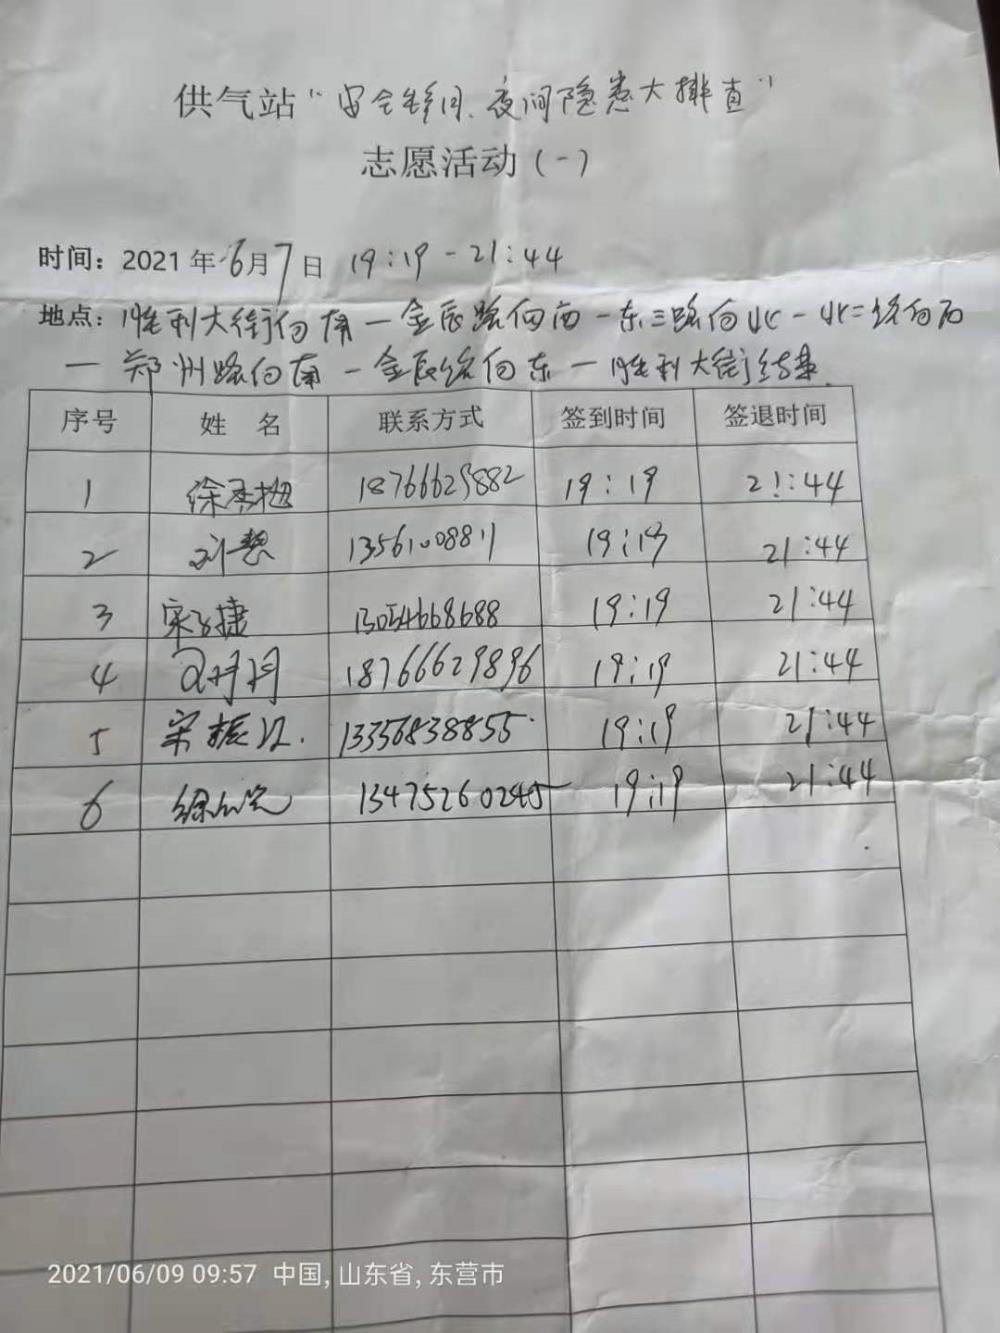 供气站“安全生产月、夜间隐患大排查”
志愿活动(一)
时间：2021年6月7日 19:19-21:44
地点：胜利大街向南—金辰路向西—东三路向北—北二路向西
—郑州路向南—金辰路向东—胜利大街结束
序号 姓名 联系方式 签到时间 签退时间
1 徐秀梅 18766629882 19:19 21:44
2 刘慧 13561008811 19:19 21:44
3 宋 捷 13054668688 19:19 21:44
4 18766629896 19:19 21:44
5 宋振 13356838855 19:19 21:44
6 徐 13475260245 19:19 21:44
2021/06/09 09:57 中国,山东省,东营市